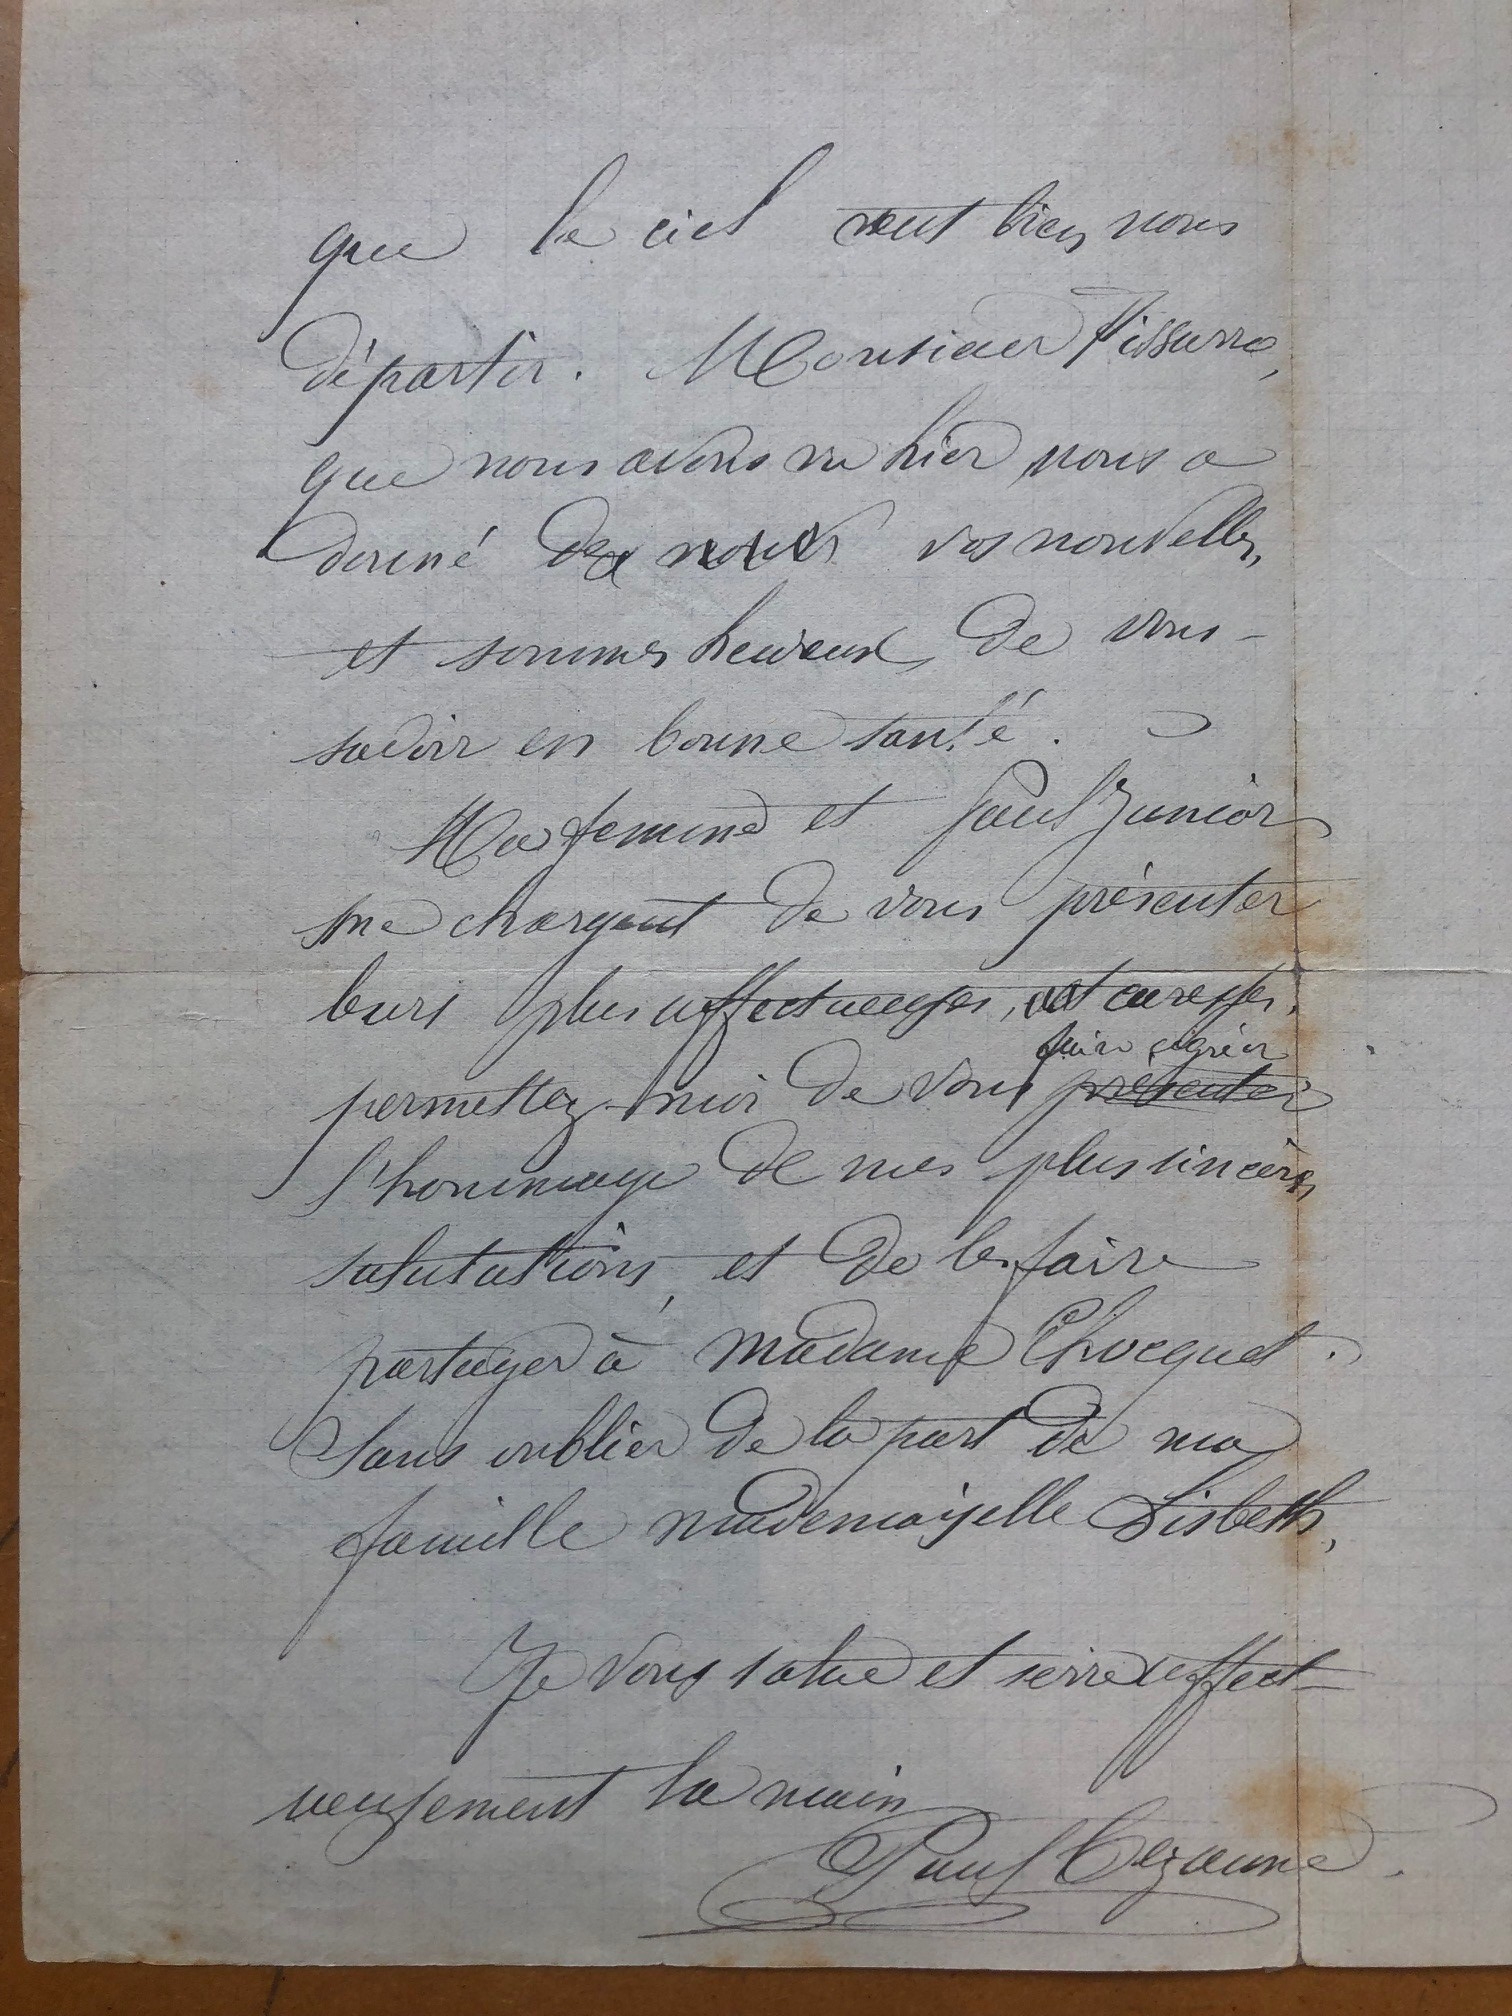 que le ciel veut bien nous
départir. Monsieur Pissarro,
que nous avons vu hier nous a
donné de vos nouvelles,
et sommes heureux de vous
savoir en bonne santé.
Ma femme et Paul Junior
me chargent de vous présenter
leurs plus affectueuses, et caresses,
faire agréer
permettez-moi de vous présenter
l'hommage de mes plus sincères
salutations, et de les faire
partager à madame Chocquet.
Sans oublier de la part de ma
famille mademoiselle Lisbeth,
Je vous salue et serre affect-
ueusement la main
Paul Cezanne.